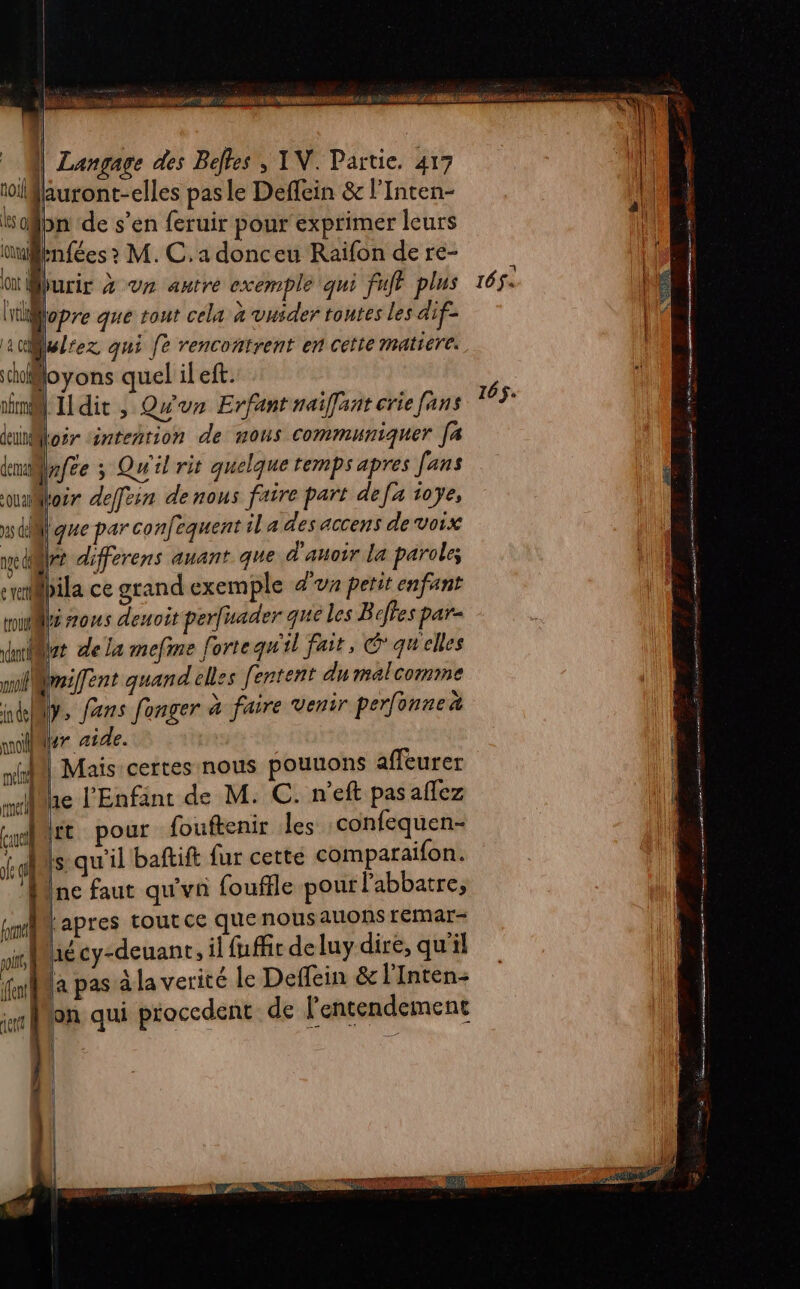 Langage des Bestes, IV. Partie. 417
auront-elles pas le Dessein & l'Inten-
on de s'en seruir pour exprimer leurs
ensées? M. C. a donc eu Raison de re-
ourir à vn autre exemple qui fust plus 165.
opre que tout cela à vuider toutes les dif-
ultez qui se rencontrent en cette matiere.
oyons quel il est.
Il dit, Qu'vn Enfant naissant crie sans 165.
oir intention de nous communiquer sa
nsée ; Qu'il rit quelque temps apres sans
oir dessein de nous faire part de sa ioye,
que par consequent il a des accens de voix
rt differens auant que d'auoir la parole;
oila ce grand exemple d'vn petit enfant
i nous deuoit persuader que les Bestes par-
nt de la mesme sorte qu'il fait, & qu'elles
missent quand elles sentent du mal comme
y, sans songer à faire venir personne à
ur aide.
Mais certes nous pouuons asseurer
ue l'Enfant de M. C. n'est pas assez
rt pour soustenir les consequen-
s qu'il bastist sur cette comparaison.
ne faut qu'vn souffle pour l'abbatre,
apres tout ce que nous auons remar-
ué cy-deuant, il suffit de luy dire, qu'il
a pas à la verité le Dessein & l'Inten-
on qui procedent de l'entendement